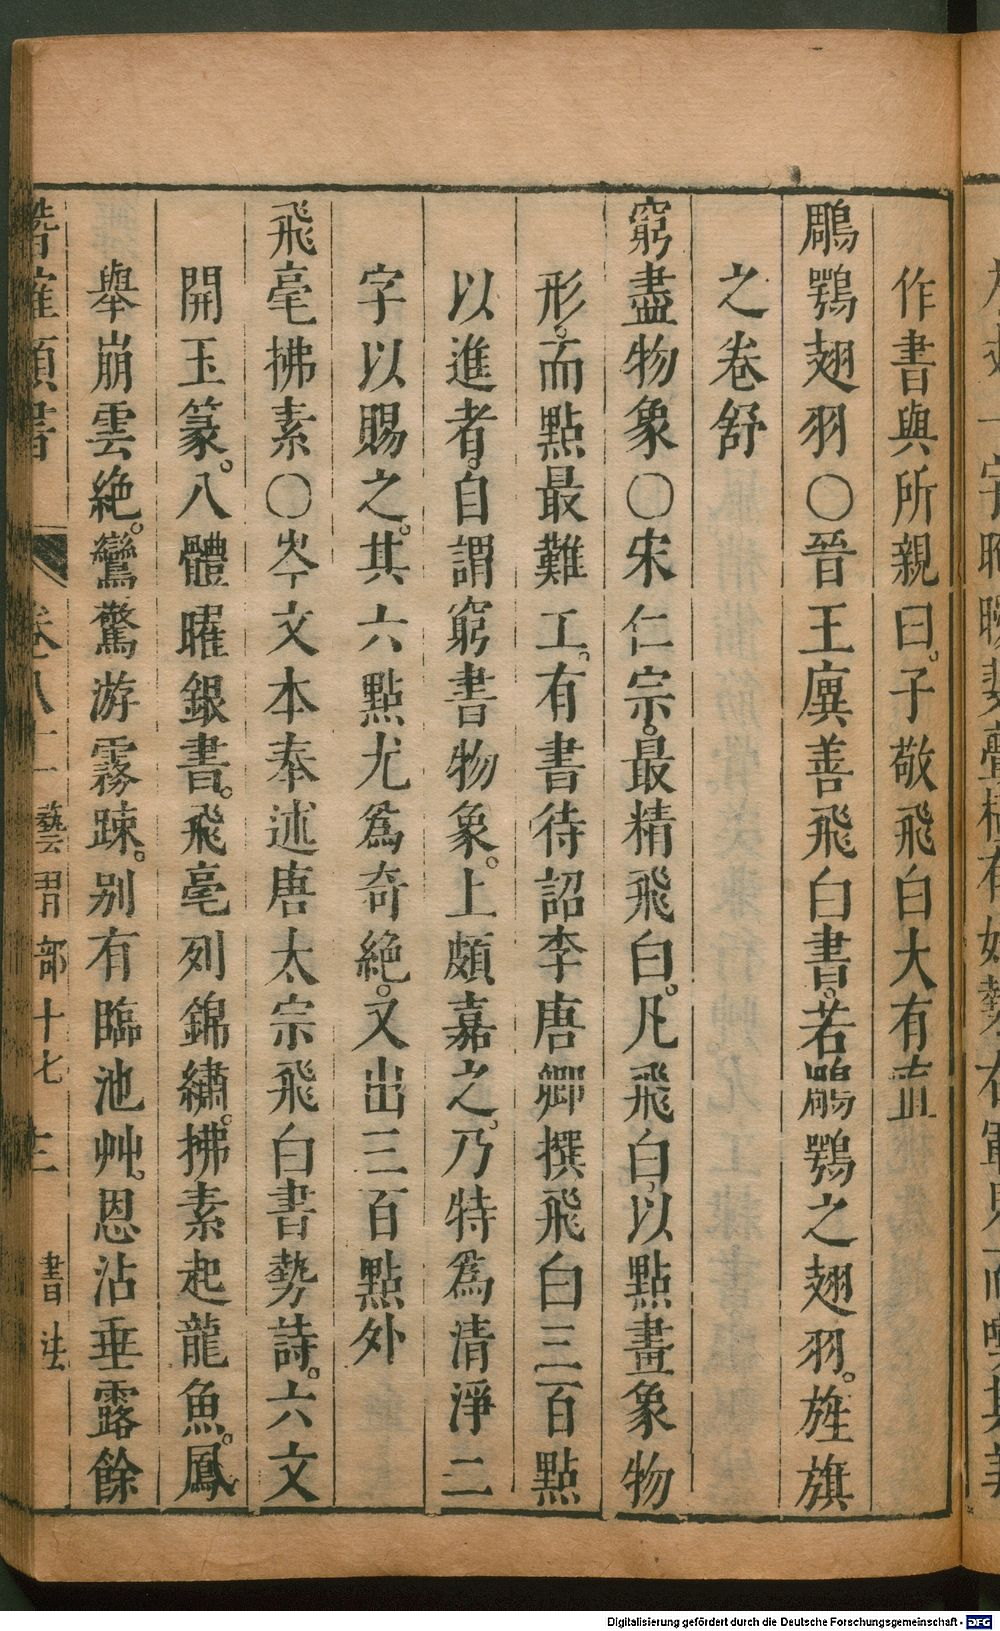 作書與所親曰。子敬飛白大有直
鵰鶚翅羽〇晉王廙善飛白書。若鵰鶚之翅羽。旌旗
之卷舒
窮盡物象〇宋仁宗。最精飛白。凡飛白。以點畫象物
形。而點最難工。有書待詔李唐卿撰飛白三百點
以進者。自謂窮書物象。上頗嘉之。乃特爲清淨二
字以賜之。其六點尤爲奇絶。又出三百點外
飛毫拂素〇岑文本奉述唐太宗飛白書勢詩。六文
開玉篆。八體曜銀書。飛毫列錦繡。拂素起龍魚。鳳
舉崩雲絶。鸞驚游霧踈。别有臨池艸。恩沾垂露餘
類書 卷八十二 藝習部十七 三 書法
Digitalisierung gefördert durch die Deutsche Forschungsgemeinschaft - DFG